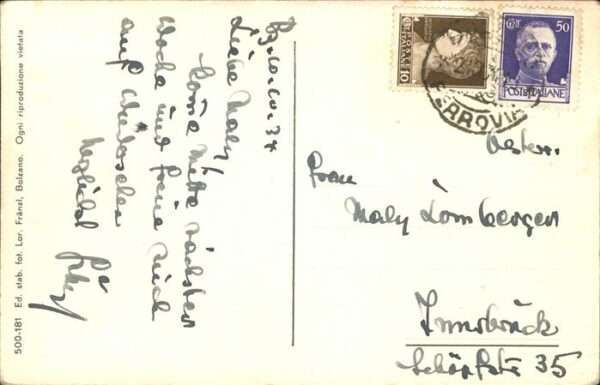 500-181 Ed. stab. fot. Lor. Fränzl, Bolzano. Ogni riproduzione vietata
Bz. 10. 10. 37
Liebe Maly!
Komme Mitte nächster
Woche und freue mich
auf Wiedersehen
Herzlichst
10
50
POSTE ITALIANE
FERROVIA
Oesterr.
Frau
Maly Lomberger
Innsbruck
Schöpfstr 35